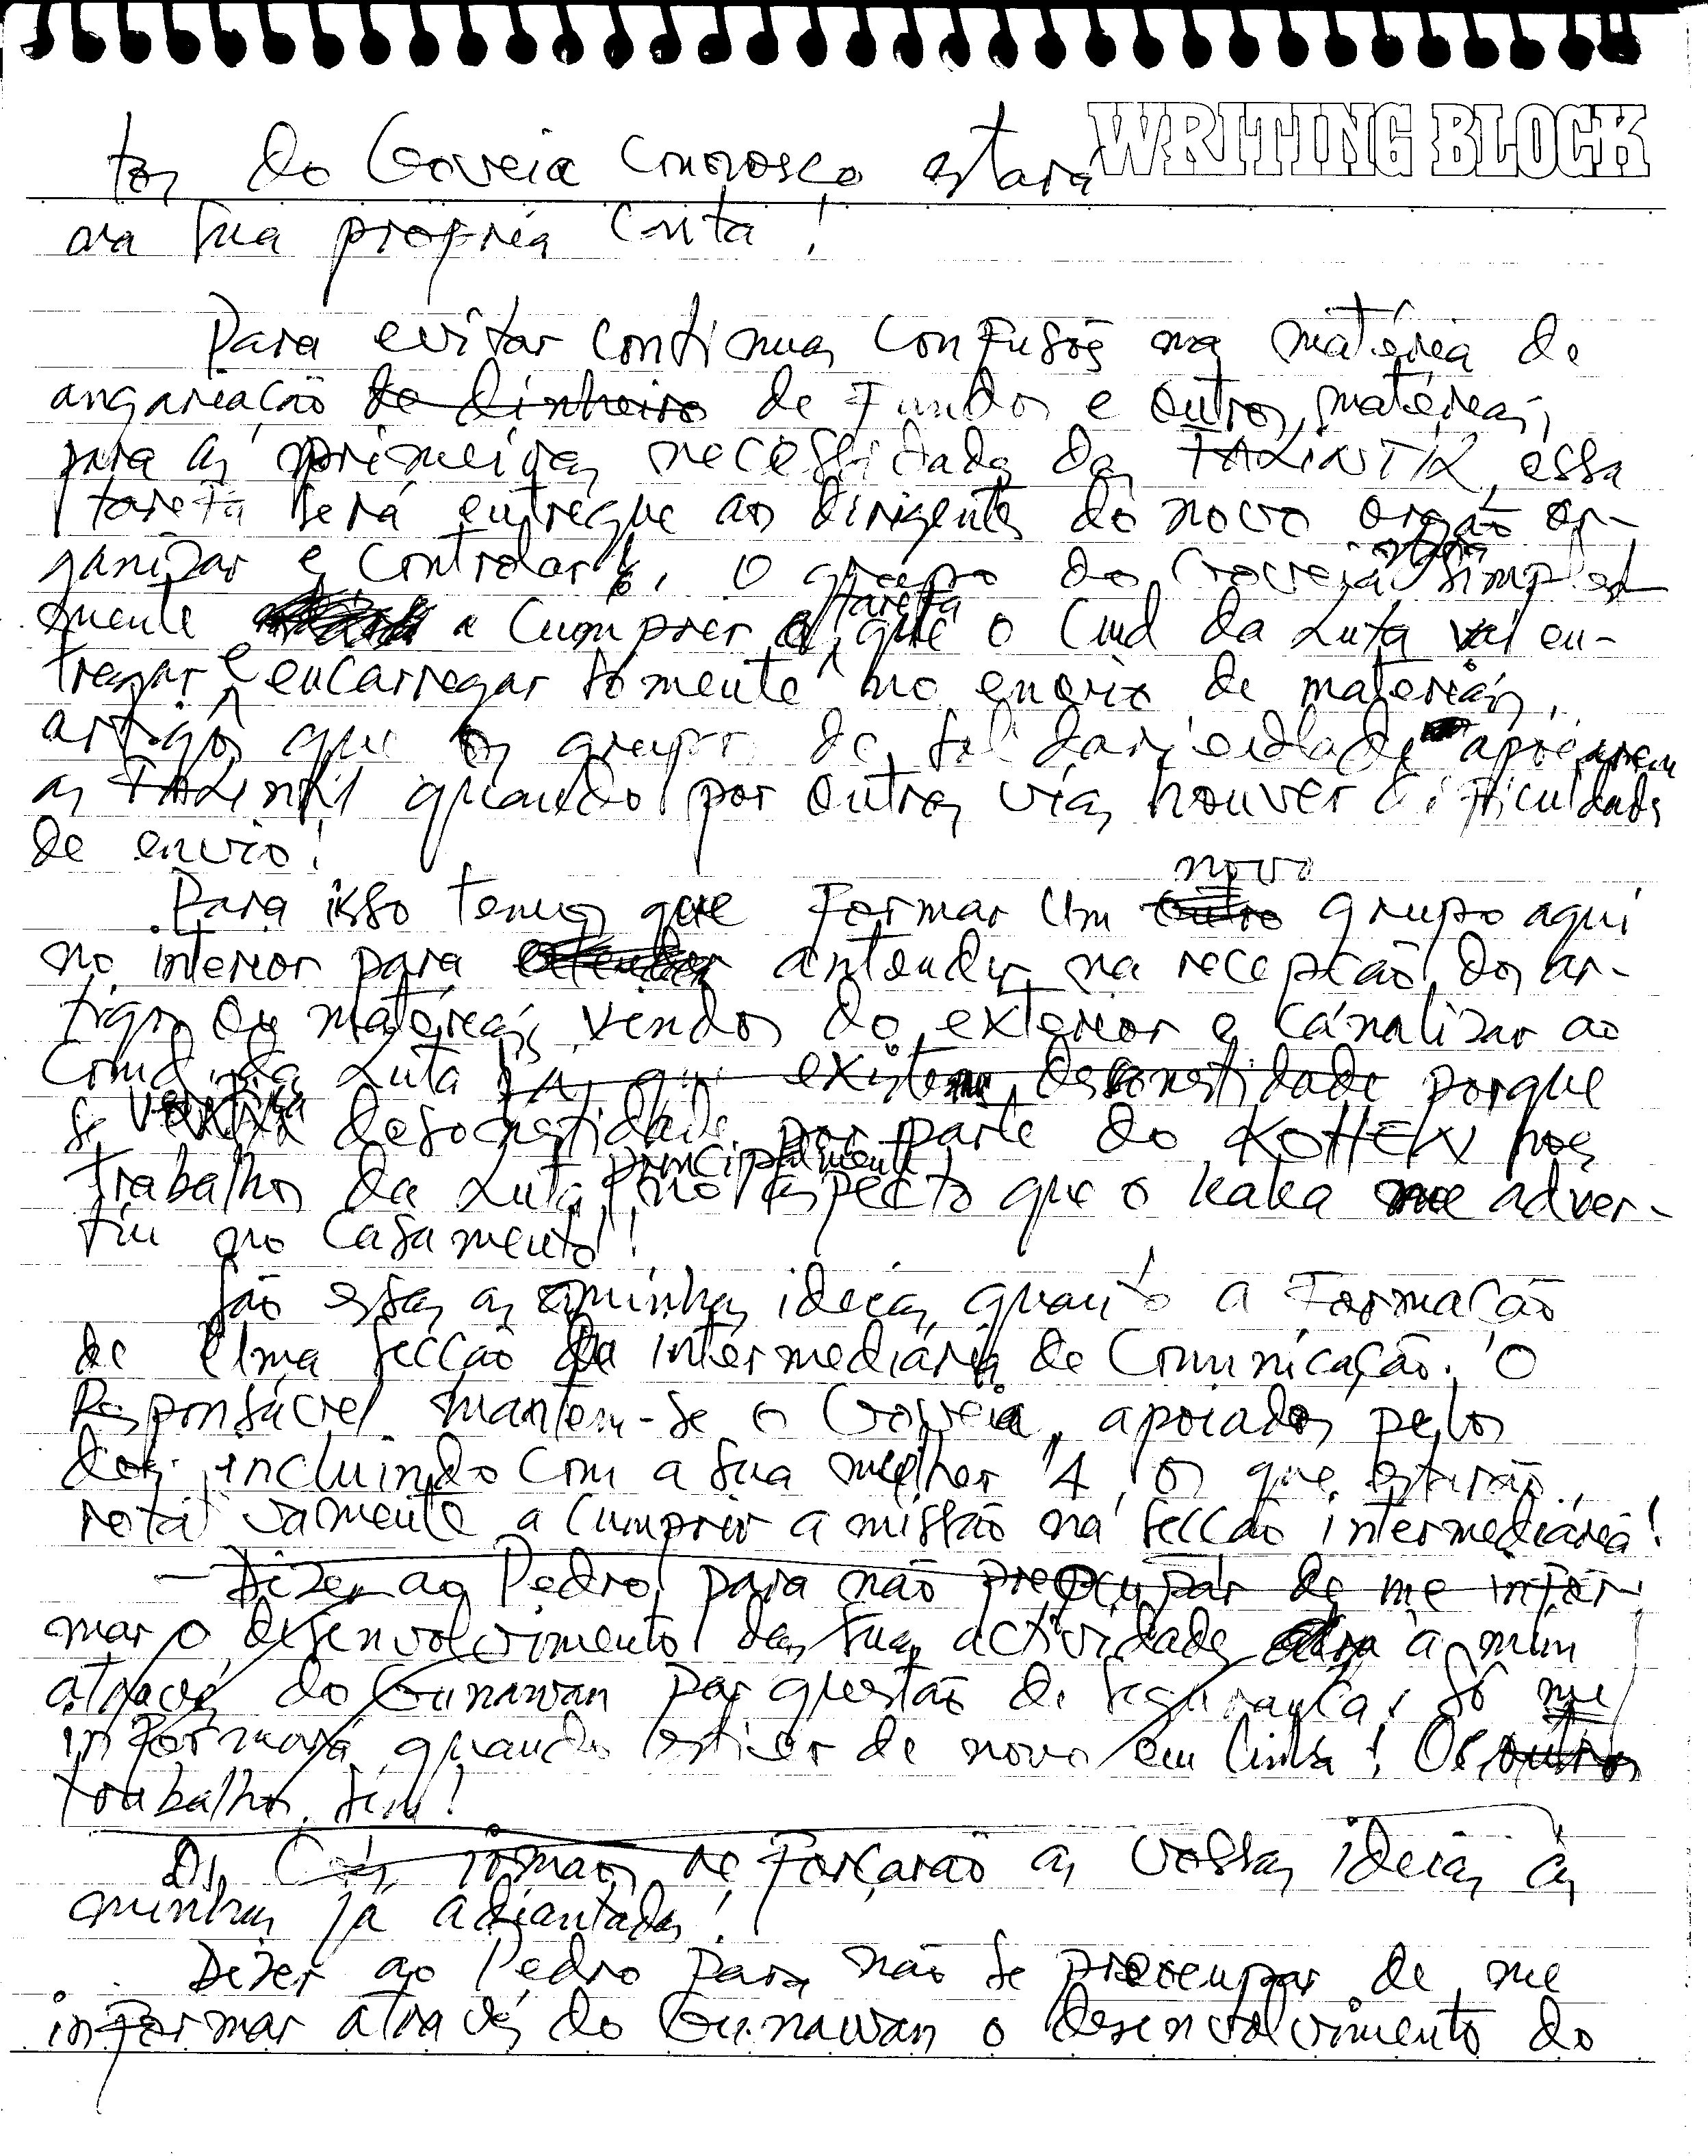 WRITING BLOCK
tos do Gouveia connosco estará
na sua própria conta!
Para evitar continuas confusões na matéria de
angariação de dinheiro de fundos e outros matérias,
para as primeiras necessidades das FALINTIL, essa
tarefa será entregue aos dirigentes do novo orgão or-
ganizar e controlar! O grupo do Gouveia simples-
mente a cumprir a tarefa que o Cmd da Luta vai en-
tregar e encarregar somente no envio de materiais,
artigos que os grupos de solidariedade
as FALINTIL quando por outras vias houver dificuldades
de envio!
Para isso temos que formar um outro novo grupo aqui
no interior para antender na recepção dos ar-
tigos ou matérias vindos do exterior e canalizar ao
Comd. da Luta já que existem desonestidade porque
se verifica desonestidade por parte do KOTTEN nos
trabalhos da Luta, principalmente no aspecto que o kaka me adver-
tiu no casamento!
São essas as minhas ideias quanto a formação
de uma secção da intermediária de Comunicação. O
Responsável mantem-se o Gouveia, apoiados pelos
dois, incluindo com a sua mulher 4, os que estarão
rotativamente a cumprir a missão na secção intermediária!
- Dizer ao Pedro, para não preocupar de me infor-
mar o desenvolvimento das suas actividades à mim
através do Gunawan por questão de segurança, só me
informará quando estiver de novo em Linha! Os outros
trabalhos, sim!
Os irmãos reforçarão as vossas ideias às
minhas já adiantadas!
Dizer ao Pedro para não se preocupar de me
informar através do Gunawan o desenvolvimento do